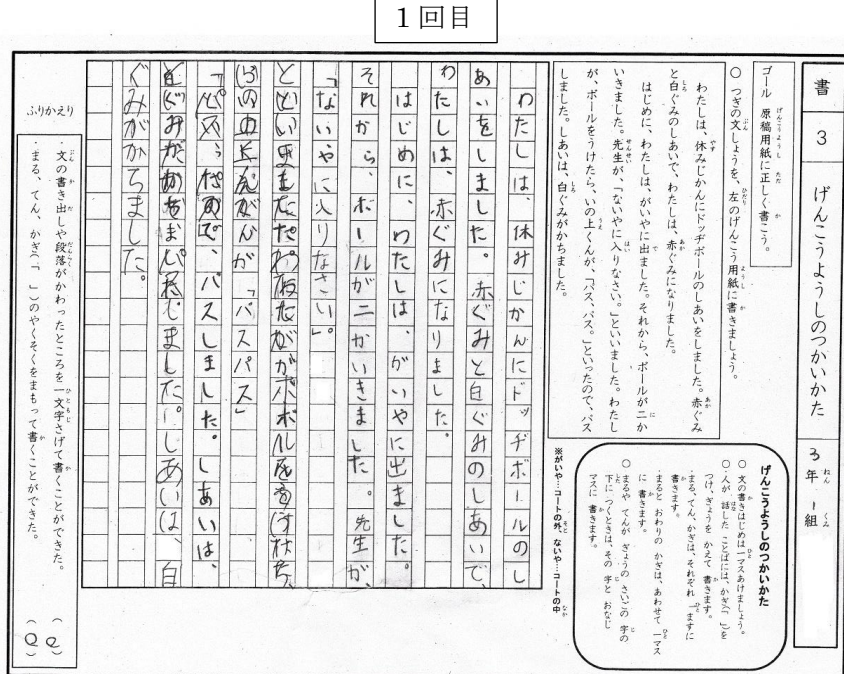 1回目
書
3
げんこうようしのつかいかた
3年 1組
ゴール 原稿用紙に正しく書こう。
○ つぎの文しょうを、左のげんこう用紙に書きましょう。
わたしは、休みじかんにドッヂボールのしあいをしました。赤ぐみ
と白ぐみのしあいで、わたしは、赤ぐみになりました。
はじめに、わたしは、がいやに出ました。それから、ボールが二か
いきました。先生が、「ないやに入りなさい。」といいました。わたし
が、ボールをうけたら、いの上くんが、「パス、パス。」といったので、パス
しました。しあいは、白ぐみがかちました。
げんこうようしのつかいかた
○ 文の書きはじめは一マスあけましょう。
○ 人が 話した ことばには、かぎ(「 」)を
つけ、ぎょうを かえて 書きます。
・まる、てん、かぎは、それぞれ 一ますに
書きます。
・まると おわりの かぎは、あわせて 一マス
に 書きます。
○ まるや てんが ぎょうの さいごの 字の
下に つくときは、その 字と おなじ
マスに 書きます。
※がいや…コートの外、ないや…コートの中
わたしは、休みじかんにドッヂボールのし
あいをしました。赤ぐみと白ぐみのしあいで、
わたしは、赤ぐみになりました。
はじめに、わたしは、がいやに出ました。
それから、ボールが二かいきました。先生が、
「ないやに入りなさい」。
「パスパス」
パスしました。しあいは、
しました。しあいは、白
ぐみがかちました。
ふりかえり
・文の書き出しや段落がかわったところを一文字さげて書くことができた。
・まる、てん、かぎ(「 」)のやくそくをまもって書くことができた。